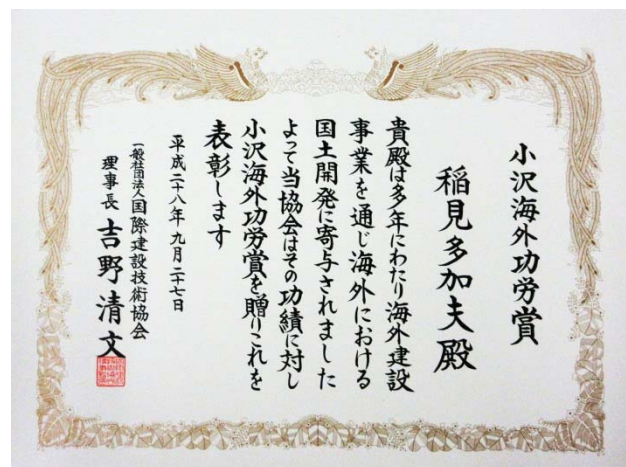 小沢海外功労賞
稲見多加夫殿
貴殿は多年にわたり海外建設
事業を通じ海外における
国土開発に寄与されました
よって当協会はその功績に対し
小沢海外功労賞を贈りこれを
表彰します
平成二十八年九月二十七日
一般社団法人国際建設技術協会
理事長 吉野清文